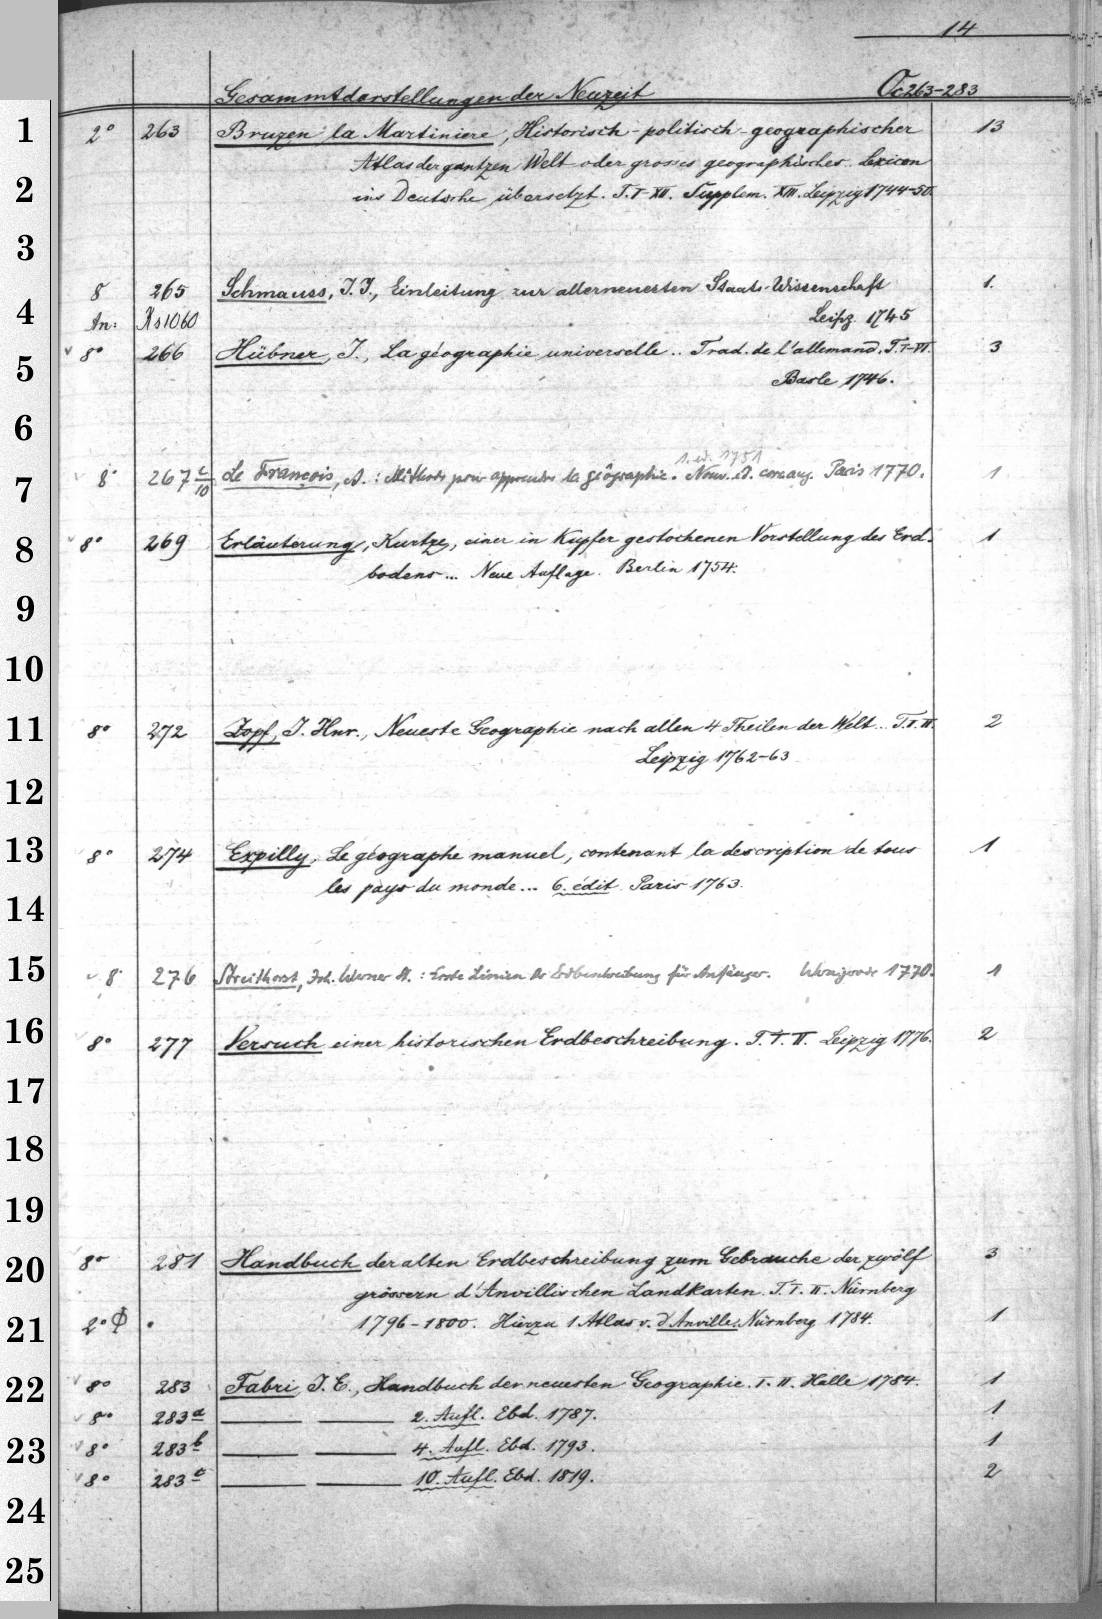 14
Gesammtdarstellungen der Neuzeit Oc 263-283
1 2° 263 Bruzen la Martiniere, Historisch-politisch-geographischer 13
Atlas der gantzen Welt oder grosses geographisches Lexicon
2 ins Deutsche übersetzt. T. I-XII. Supplem. XIII. Leipzig 1744-50.
3
8 265 Schmauss, J. J., Einleitung zur allerneuesten Staats-Wissenschaft 1.
4 An: Ks 1060 Leipz. 1745
8° 266 Hübner, J., La géographie universelle .. Trad. de l'allemand. T. I-VI. 3
5 Basle 1746.
6
1. éd. 1751
7 8° 267 c/10 Le François, A.: Méthode pour apprendre la géographie. Nouv. éd. Paris 1770. 1
8 8° 269 Erläuterung, Kurtze, einer in Kupfer gestochenen Vorstellung des Erd- 1
bodens ... Neue Auflage. Berlin 1754.
9
10
11 8° 272 Zopf, J. Hnr., Neueste Geographie nach allen 4 Theilen der Welt .. T. I. II. 2
Leipzig 1762-63
12
13 8° 274 Expilly, Le géographe manuel, contenant la description de tous 1
les pays du monde ... 6. édit. Paris 1763.
14
15 8° 276 Streithorst, Joh. Werner: Erste Linien der Erdbeschreibung für Anfänger. 1770. 1
16 8° 277 Versuch einer historischen Erdbeschreibung. T. I. II. Leipzig 1776. 2
17
18
19
20 8° 281 Handbuch der alten Erdbeschreibung zum Gebrauche der zwölf 3
grössern d'Anvillischen Landkarten. T. I. II. Nürnberg
21 2° Φ 1796-1800. Hierzu 1 Atlas v. d'Anville. Nürnberg 1784. 1
22 8° 283 Fabri, J. E., Handbuch der neuesten Geographie. I. II. Halle 1784. 1
8° 283 a — — 2. Aufl. Ebd. 1787. 1
23 8° 283 b — — 4. Aufl. Ebd. 1793. 1
8° 283 c — — 10. Aufl. Ebd. 1819. 2
24
25